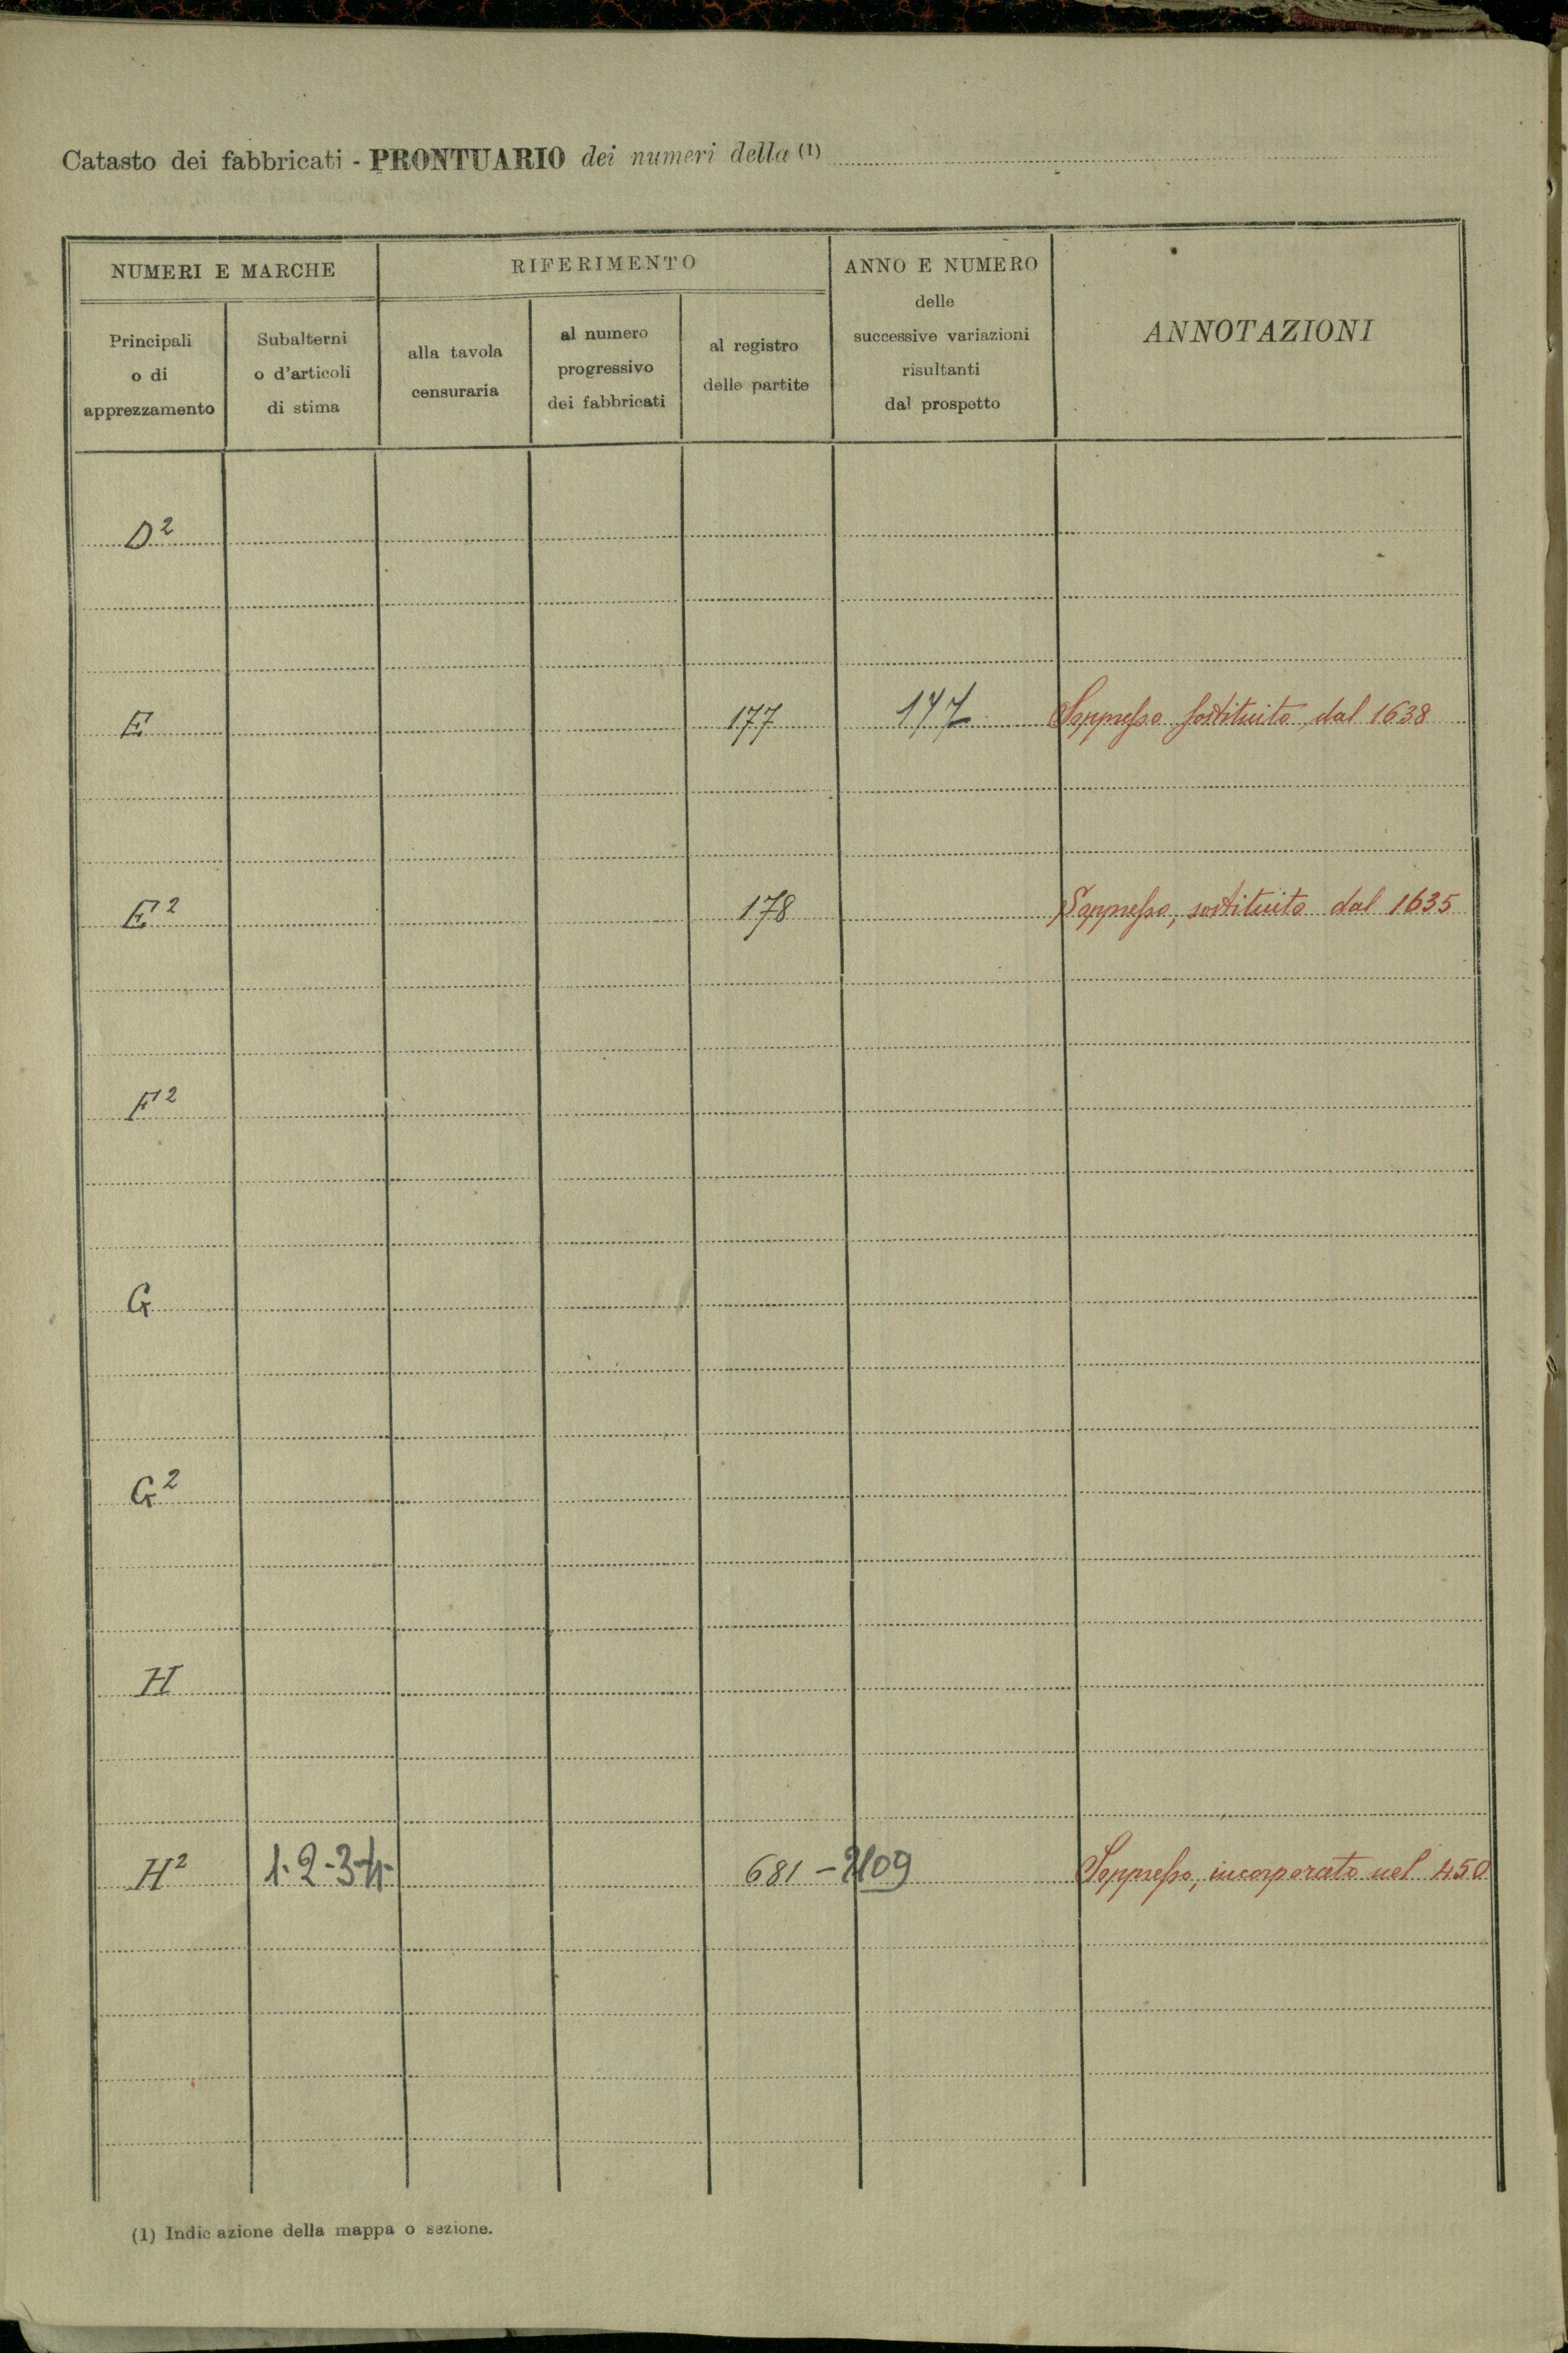 Catasto dei fabbricati - PRONTUARIO dei numeri della (1)
NUMERI E MARCHE
RIFERIMENTO
ANNO E NUMERO
delle
successive variazioni
risultanti
dal prospetto
ANNOTAZIONI
Principali
o di
apprezzamento
Subalterni
o d'articoli
di stima
alla tavola
censuraria
al numero
progressivo
dei fabbricati
al registro
delle partite
D²
E 177 147 Soppresso sostituito dal 1638
E² 178 Soppresso, sostituito dal 1635
F²
G
G²
H
H² 1-2-3-4- 681 - 2109 Soppresso, incorporato nel 450
(1) Indicazione della mappa o sezione.